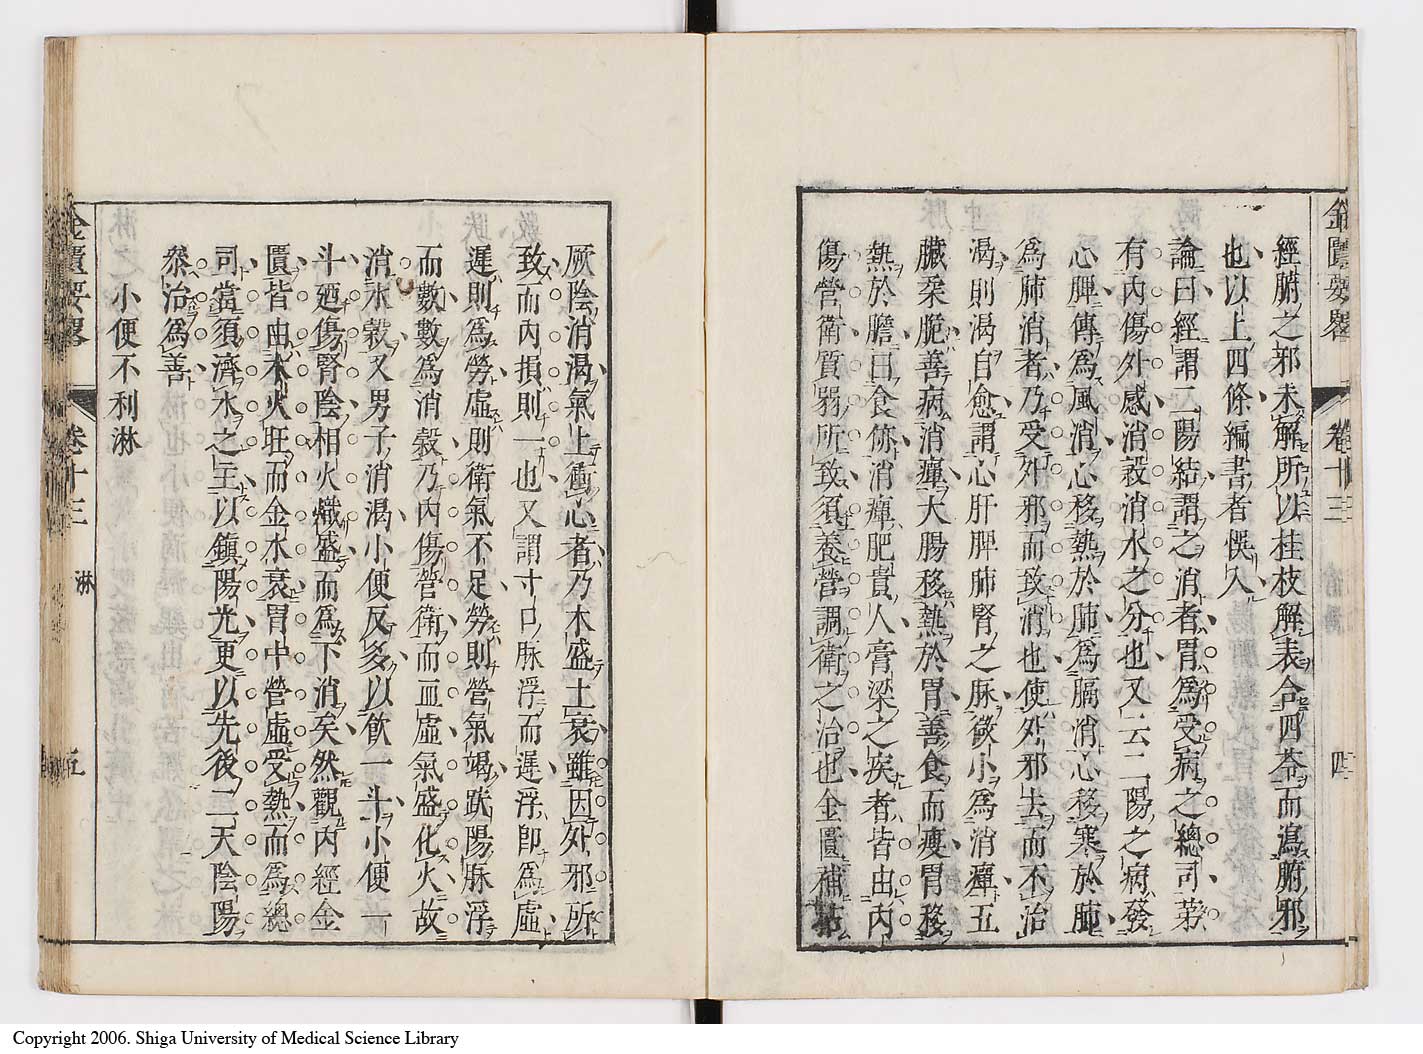 金匱要畧 卷十三 四
經腑之邪未解所以桂枝解表合四苓而瀉腑邪
也以上四條編書者悞入
論曰經謂二陽結謂之消者胃爲受病之總司第
有內傷外感消穀消水之分也又云二陽之病發
心脾傳爲風消心移熱於肺爲膈消心移寒於肺
爲肺消者乃受外邪而致消也使外邪去而不治
渴則渴自愈謂心肝脾肺腎之脉微小爲消癉五
臟柔脆善病消癉大腸移熱於胃善食而瘦胃移
熱於膽曰食㑊消癉肥貴人膏梁之疾者皆由內
傷營衛質弱所致須養營調衛之治也金匱補
厥陰消渴氣上衝心者乃木盛土衰雖因外邪所
致而內損則一也又謂寸口脉浮而遲浮卽爲虛
遲則爲勞虛則衛氣不足勞則營氣竭趺陽脉浮
而數數爲消穀乃內傷營衛而血虛氣盛化火故
消水穀又男子消渴小便反多以飮一斗小便一
斗廼傷腎陰相火熾盛而爲下消矣然觀內經金
匱皆由木火旺而金水衰胃中營虛受熱而爲總
司當須濟水之主以鎮陽光更以先後二天陰陽
叅治爲善
小便不利淋
金匱要畧 卷十三 淋 五
Copyright 2006. Shiga University of Medical Science Library